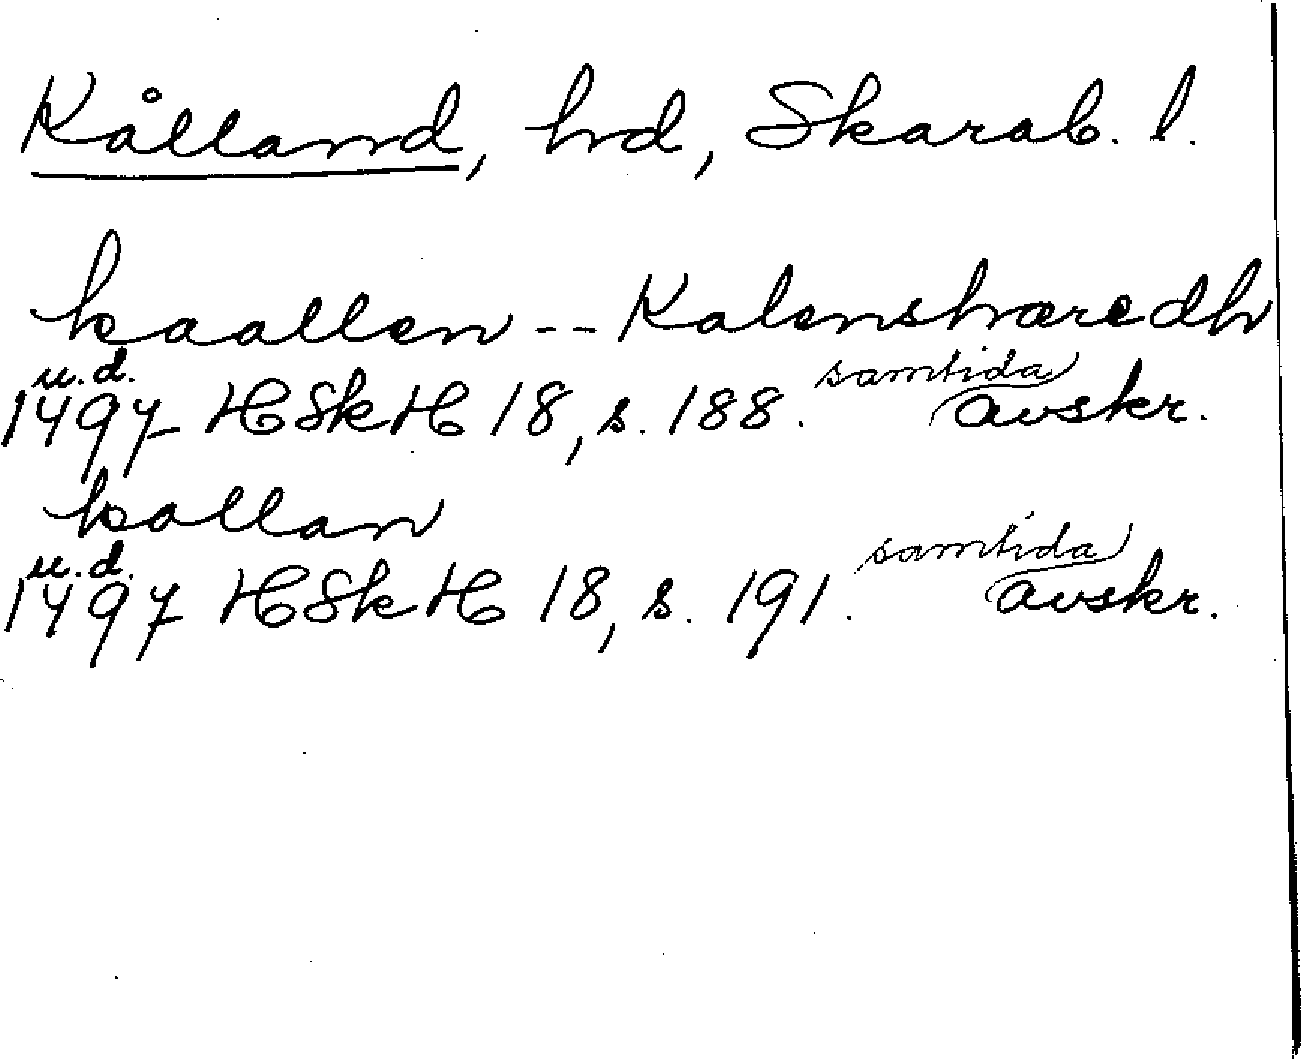 Kålland, hd, Skarab. l.
kaallen -- Kalenshæredh
u.d.
1497 HSkH 18, s. 188. samtida avskr.
kallan
u.d.
1497 HSkH 18, s. 191. samtida avskr.